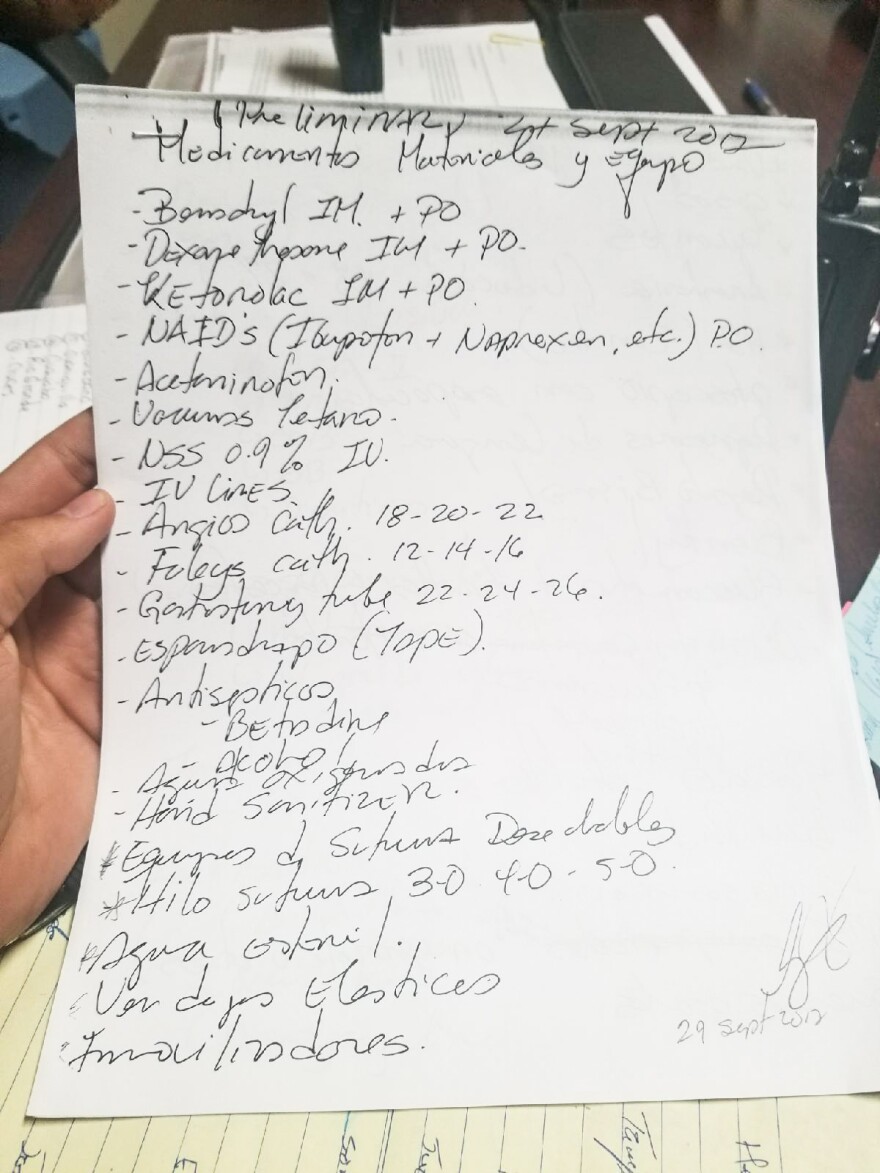 (Preliminar) 29 Sept 2017
Medicamentos Materiales y Equipo
- Benadryl IM. + PO
- Dexamethasone IM + PO.
- KEtorolac IM + PO.
- NAID's (Ibuprofen + Naproxen, etc.) P.O.
- Acetaminofen.
- Vacunas Tetano.
- NSS 0.9% IV.
- IV LINES.
- Angio cath. 18-20-22
- Foleys cath. 12-14-16
- Gastrostomy tube 22-24-26.
- Esparadrapo (TAPE).
- Antisepticos
- BEtadine
- Alcohol
- Agua oxigenada
- Hand SanitizER.
* Equipos d Sutura Desechables
* Hilo sutura 3-0 4-0 - 5-0.
* Agua esteril.
* Vendajes Elasticos
* Inmovilizadores.
29 Sept 2017